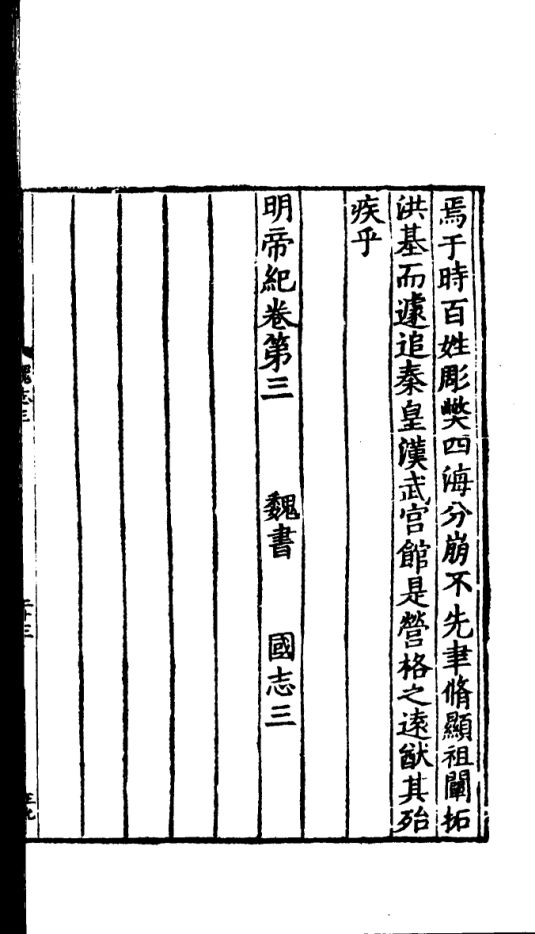 焉于時百姓彫獘四海分崩不先聿脩顯祖闡拓
洪基而遽追秦皇漢武宫館是營格之逺猷其殆
疾乎
明帝紀卷第三 魏書 國志三
魏志三